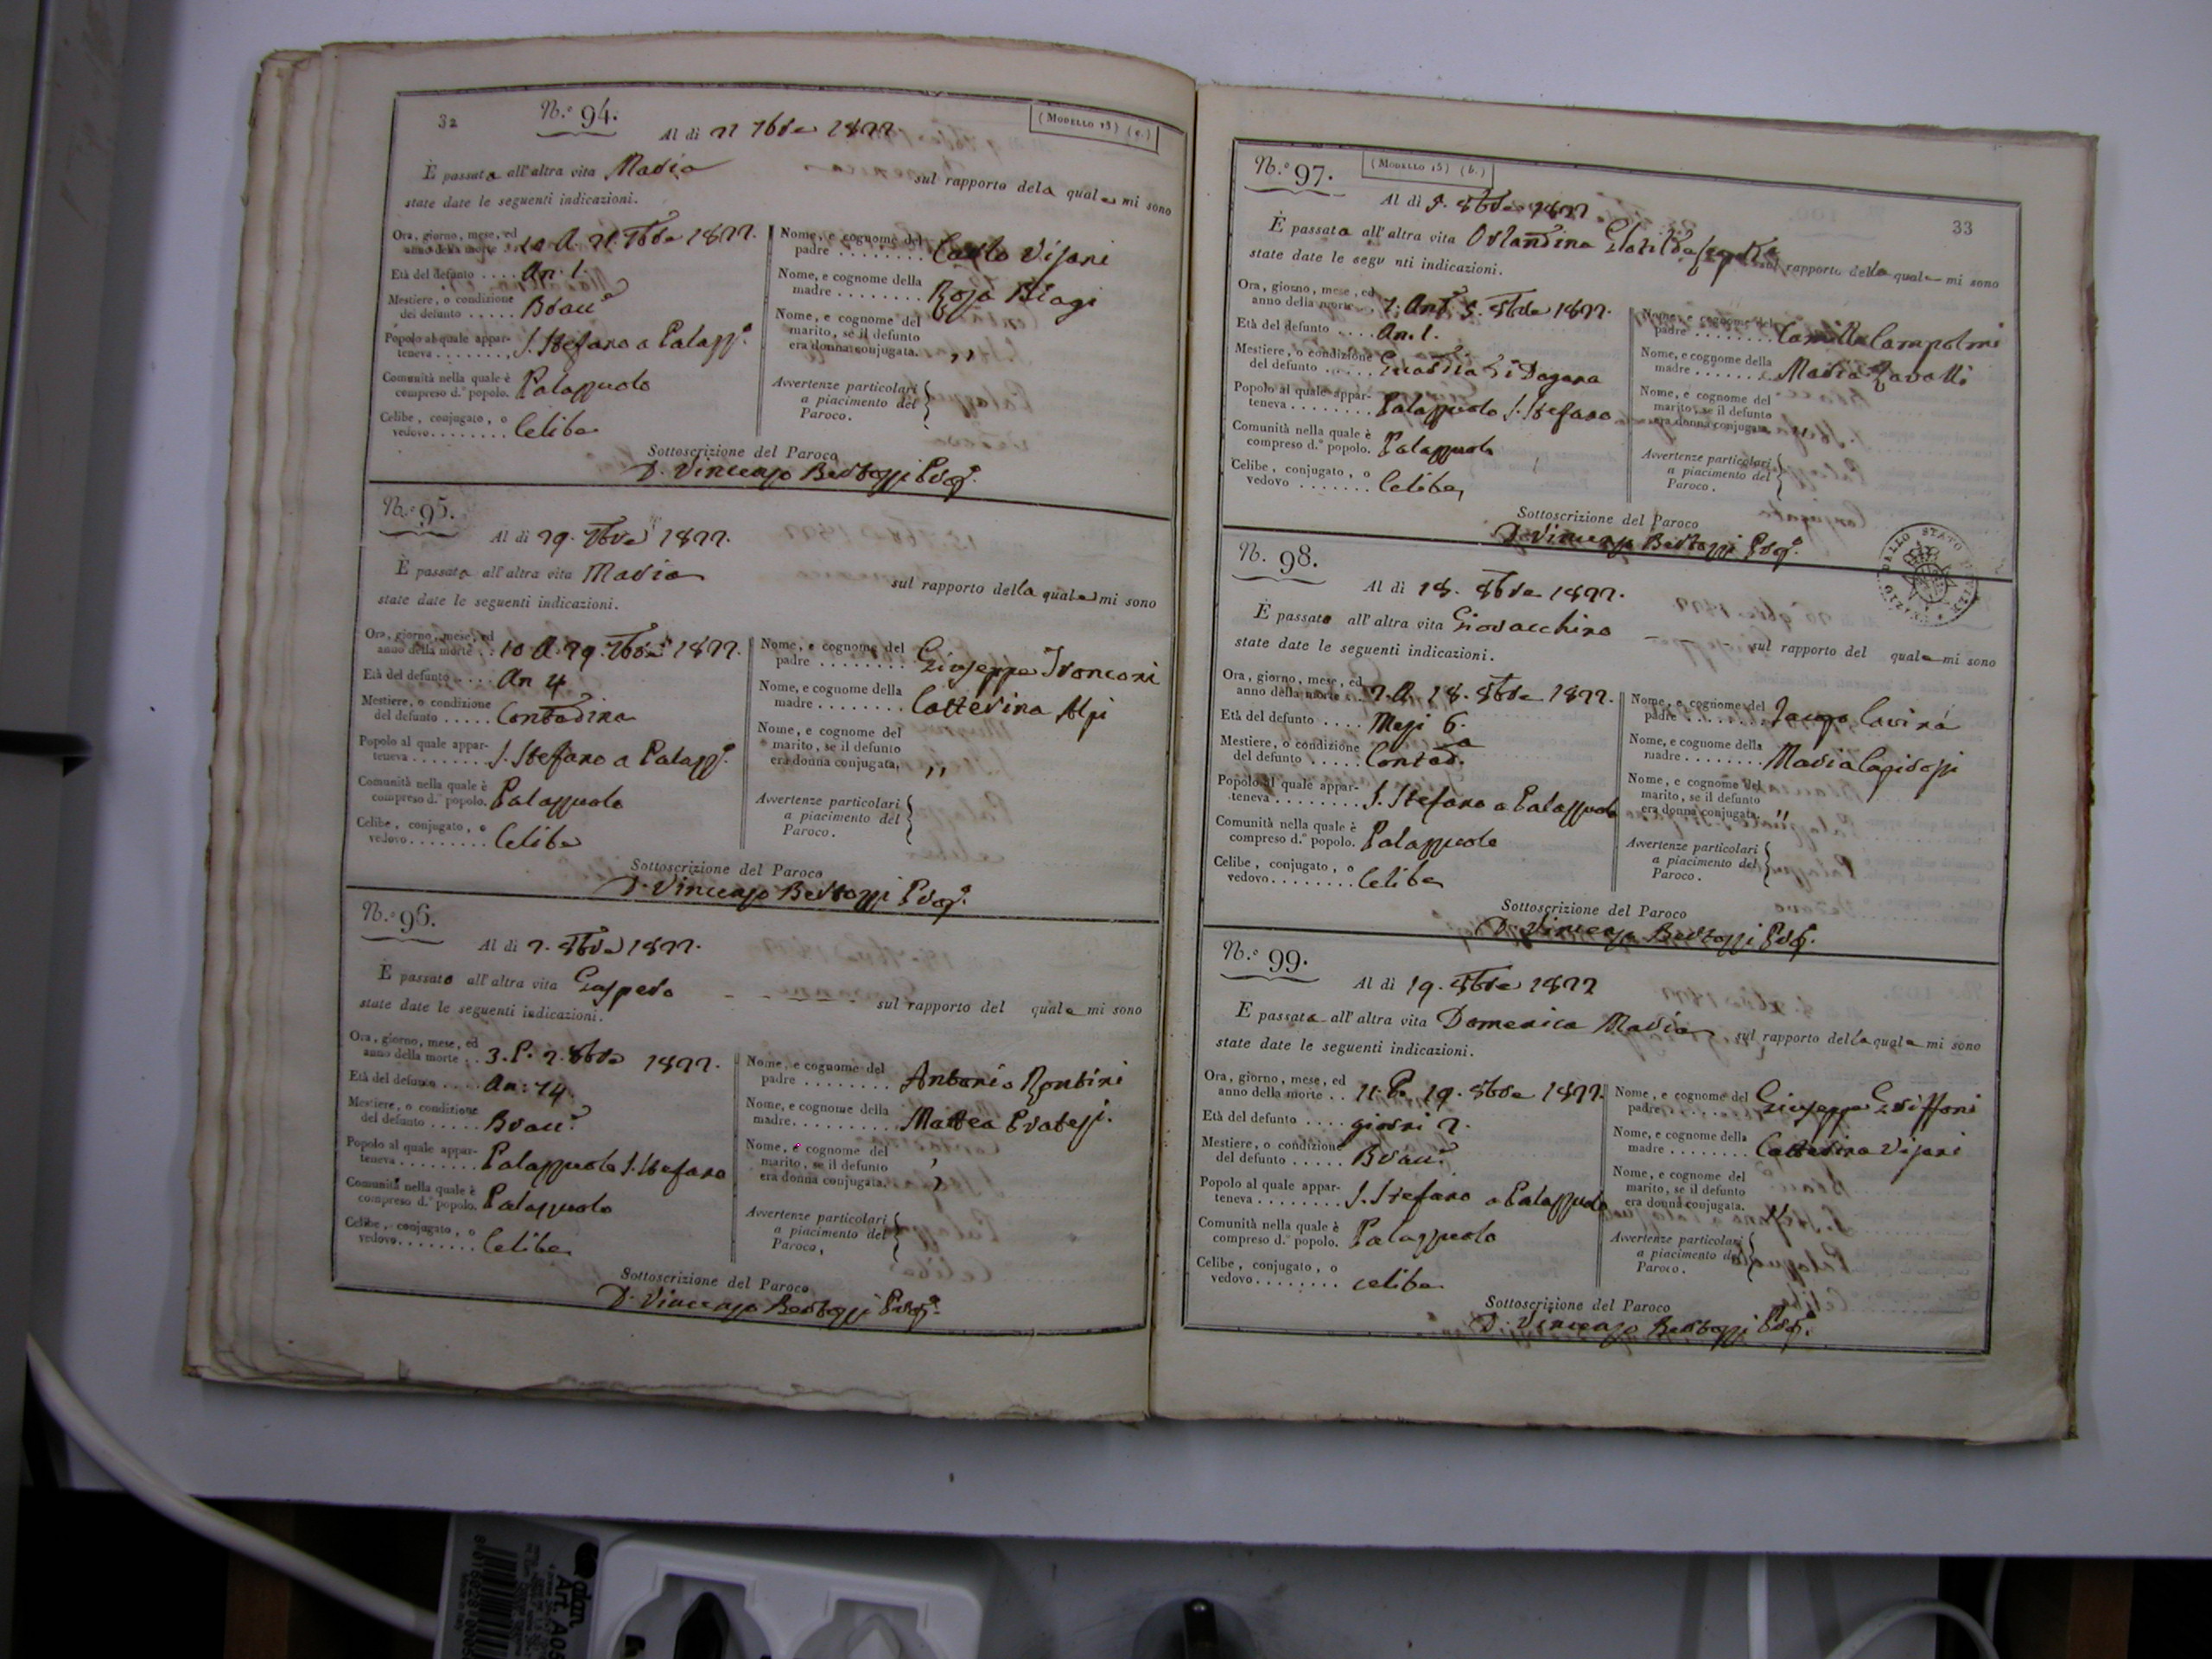 32
N.° 94.
(Modello 15) (a.)
Al dì 21 7bre 1822.
È passata all'altra vita Maria sul rapporto dela quale mi sono
state date le seguenti indicazioni.
Ora, giorno, mese, ed
anno della morte 10 A. 21. 7bre 1822.
Età del defunto .... An. 1.
Mestiere, o condizione
del defunto ..... Brac.e
Popolo al quale appar-
teneva ........ S. Stefano a Palazz.o
Comunità nella quale è
compreso d.° popolo. Palazzuolo
Celibe, conjugato, o
vedovo ........ Celibe
Nome, e cognome del
padre ........ Carlo Visani
Nome, e cognome della
madre ........ Rosa Biagi
Nome, e cognome del
marito, se il defunto
era donna conjugata. ,,
Avvertenze particolari
a piacimento del
Paroco.
Sottoscrizione del Paroco
D. Vincenzo Bertozzi Prop.o
N.° 95.
Al dì 29. 7bre 1822.
È passata all'altra vita Maria sul rapporto della quale mi sono
state date le seguenti indicazioni.
Ora, giorno, mese, ed
anno della morte .. 10 A. 29. 7bre 1822.
Età del defunto .... An 4
Mestiere, o condizione
del defunto ..... Contadina
Popolo al quale appar-
teneva ........ S. Stefano a Palazz.o
Comunità nella quale è
compreso d.° popolo. Palazzuolo
Celibe, conjugato, o
vedovo ........ Celibe
Nome, e cognome del
padre ........ Giuseppe Tronconi
Nome, e cognome della
madre ........ Catterina Alpi
Nome, e cognome del
marito, se il defunto
era donna conjugata. ,,
Avvertenze particolari
a piacimento del
Paroco.
Sottoscrizione del Paroco
D. Vincenzo Bertozzi Prop.o
N.° 96.
Al dì 2. 8bre 1822.
È passato all'altra vita Gaspero sul rapporto del quale mi sono
state date le seguenti indicazioni.
Ora, giorno, mese, ed
anno della morte .. 3. P. 2. 8bre 1822.
Età del defunto .... An: 14.
Mestiere, o condizione
del defunto ..... Brac.e
Popolo al quale appar-
teneva ........ Palazzuolo S. Stefano
Comunità nella quale è
compreso d.° popolo. Palazzuolo
Celibe, conjugato, o
vedovo ........ Celibe
Nome, e cognome del
padre ........ Antonio Rontini
Nome, e cognome della
madre ........ Mattea Pratesi.
Nome, e cognome del
marito, se il defunto
era donna conjugata. ,,
Avvertenze particolari
a piacimento del
Paroco,
Sottoscrizione del Paroco
D. Vincenzo Bertozzi Prop.o
33
N.° 97.
(Modello 15) (b.)
Al dì 5. 8bre 1822
È passata all'altra vita Orlandina Clotilde sul rapporto della quale mi sono
state date le segu nti indicazioni.
Ora, giorno, mese, ed
anno della morte 7. Ant. 5. 8bre 1822.
Età del defunto .... An. 1.
Mestiere, o condizione
del defunto ..... Guardia di Dogana
Popolo al quale appar-
teneva ........ Palazzuolo S. Stefano
Comunità nella quale è
compreso d.° popolo. Palazzuolo
Celibe, conjugato, o
vedovo ........ Celibe,
Nome, e cognome del
padre ........ Camillo Campolmi
Nome, e cognome della
madre ........ Maria Zavatti
Nome, e cognome del
marito, se il defunto
era donna conjugata. ,,
Avvertenze particolari
a piacimento del
Paroco.
Sottoscrizione del Paroco
D. Vincenzo Bertozzi Prop.o
N. 98.
Al dì 18. 8bre 1822.
È passato all'altra vita Giovacchino sul rapporto del quale mi sono
state date le seguenti indicazioni.
Ora, giorno, mese, ed
anno della morte .. 2. A. 18. 8bre 1822.
Età del defunto .... Mesi 6.
Mestiere, o condizione
del defunto ..... Contad.a
Popolo al quale appar-
teneva ........ S. Stefano a Palazzuolo
Comunità nella quale è
compreso d.° popolo. Palazzuolo
Celibe, conjugato, o
vedovo ........ Celibe
Nome, e cognome del
padre ........ Jacopo Cavina
Nome, e cognome della
madre ........ Maria
Nome, e cognome del
marito, se il defunto
era donna conjugata. ,,
Avvertenze particolari
a piacimento del
Paroco.
Sottoscrizione del Paroco
D. Vincenzo Bertozzi Prop.o
N.° 99.
Al dì 19. 8bre 1822
È passata all'altra vita Domenica Maria sul rapporto della quale mi sono
state date le seguenti indicazioni.
Ora, giorno, mese, ed
anno della morte .. 11. P. 19. 8bre 1822.
Età del defunto .... giorni 2.
Mestiere, o condizione
del defunto ..... Brac.e
Popolo al quale appar-
teneva ........ S. Stefano a Palazzuolo
Comunità nella quale è
compreso d.° popolo. Palazzuolo
Celibe, conjugato, o
vedovo ........ celibe
Nome, e cognome del
padre ........ Giuseppe Griffoni
Nome, e cognome della
madre ........ Catterina Visani
Nome, e cognome del
marito, se il defunto
era donna conjugata. ,,
Avvertenze particolari
a piacimento del
Paroco.
Sottoscrizione del Paroco
D. Vincenzo Bertozzi Prop.o
adam
Art. A05